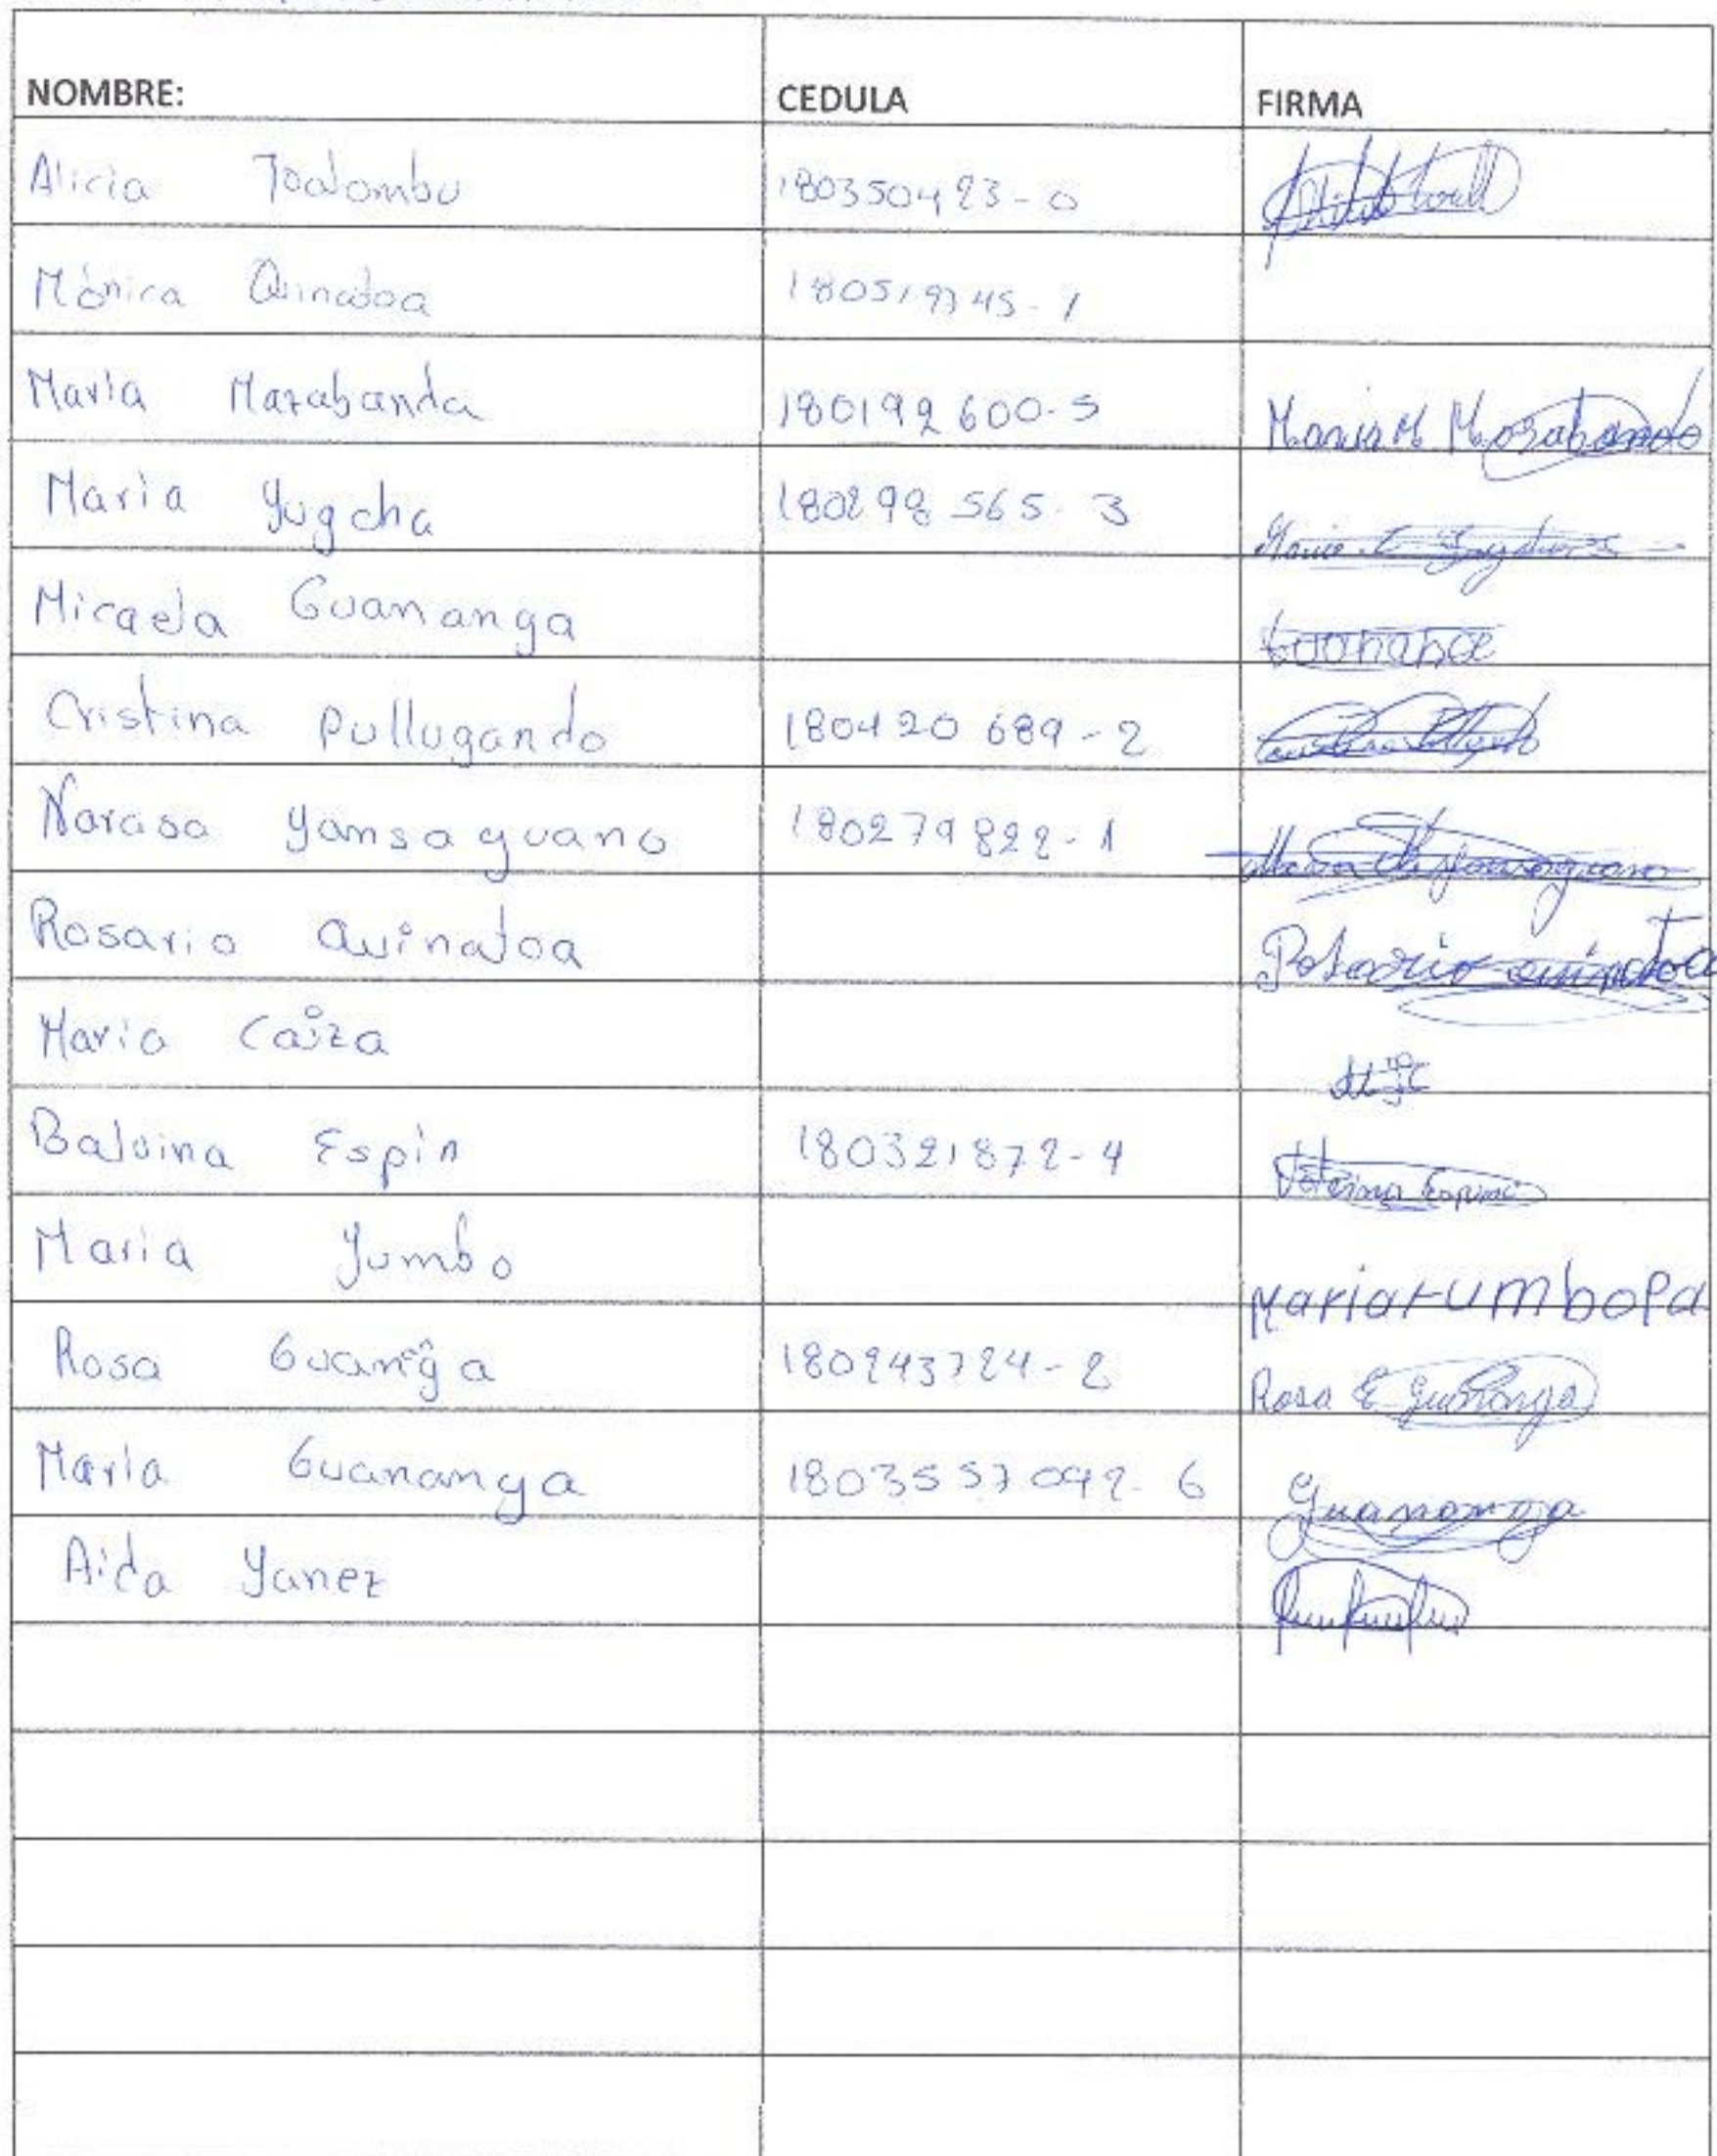 NOMBRE: CEDULA FIRMA
Alicia Toalombo 180350423-0
Mónica Quinatoa 180519745-1
María Mazabanda 180192600-5 Maria M Mozabando
María Yugcha 180298565-3
Micaela Guananga
Cristina Pullugando 180420689-2
Narcisa Yansaguano 180279822-1
Rosario Quinatoa Rosario quinatoa
Maria Caiza
Balvina Espín 180321872-4
Maria Yumbo
Rosa Guanga 180243724-2 Rosa E Guananga
María Guananga 1803557042-6 Guananga
Aida Yanez